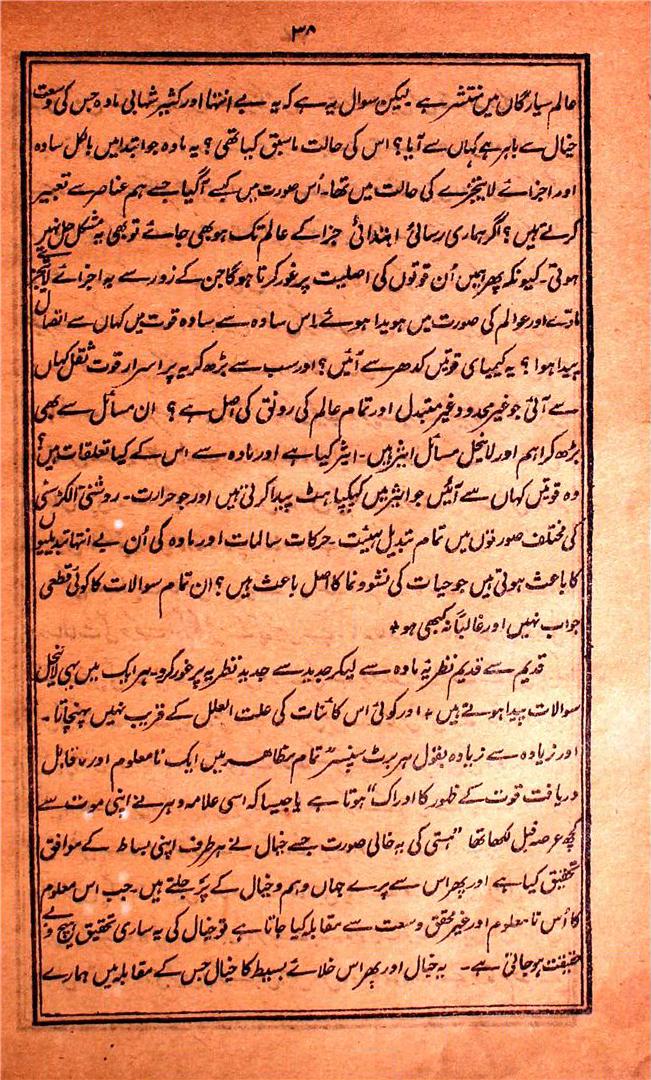 ۳۸
عالم سیارگاں میں منتشر ہے لیکن سوال یہ ہے کہ یہ بے انتہا اور کثیر شہابی مادہ جس کی وسعت
خیال سے باہر ہے کہاں سے آیا؟ اس کی حالت ماسبق کیا تھی؟ یہ مادہ جو ابتدا میں بالکل سادہ
اور اجزائے لایتجزے کی حالت میں تھا۔ اُس صورت میں کیسے آگیا جسے ہم عناصر سے تعبیر
کرتے ہیں؟ اگر ہماری رسائی ابتدائی جزا کے عالم تک ہو بھی جائے تو بھی یہ مشکل حل نہیں
ہوتی۔ کیونکہ پھر ہمیں اُن قوتوں کی اصلیت پر غور کرنا ہوگا جن کے زور سے یہ اجزائے لایتجزے
مادے اور عوالم کی صورت میں ہویدا ہوئے۔ اس سادہ سے سادہ قوت میں کہاں سے اتصال
پیدا ہوا؟ یہ کیمیای قوتیں کدھر سے آئیں؟ اور سب سے بڑھ کر یہ پر اسرار قوت ثقل کہاں
سے آئی جو غیر محدود غیر متبدل اور تمام عالم کی رونق کی اصل ہے؟ ان مسائل سے بھی
بڑھ کر اہم اور لاینحل مسائل ایثر ہیں۔ ایثر کیا ہے اور مادہ سے اس کے کیا تعلقات ہیں؟
وہ قوتیں کہاں سے آئیں جو ایثر میں کپکپاہٹ پیدا کرتی ہیں اور جو حرارت۔ روشنی الکڑسٹی
کی مختلف صورتوں میں تمام تبدیل ہیئت۔ حرکات سالمات اور مادہ کی اُن بے انتہا تبدیلیوں
کا باعث ہوتی ہیں جو حیات کی نشوونما کا اصل باعث ہیں؟ ان تمام سوالات کا کوئی قطعی
جواب نہیں اور غالباً نہ کبھی ہو +
قدیم سے قدیم نظریہ مادہ سے لیکر جدید سے جدید نظریہ پر غور کرو۔ ہر ایک میں یہی لاینحل
سوالات پیدا ہوتے ہیں + اور کوئی اس کائنات کی علت العلل کے قریب نہیں پہنچاتا۔
اور زیادہ سے زیادہ بقول ہربرٹ سپنسر تمام مظاہر میں ایک نامعلوم اور ناقابل
دریافت قوت کے ظہور کا ادراک" ہوتا ہے یا جیسا کہ اسی علامہ دہر نے اپنی موت سے
کچھ عرصہ قبل لکھا تھا "ہستی کی یہ خالی صورت جسے خیال نے ہر طرف اپنی بساط کے موافق
تحقیق کیا ہے اور پھر اس سے پرے جہاں وہم و خیال کے پَر جلتے ہیں۔ جب اس معلوم
کا اُس نامعلوم اور غیر محقق وسعت سے مقابلہ کیا جاتا ہے تو خیال کی یہ ساری تحقیق ہیچ و بے
حقیقت ہو جاتی ہے۔ یہ خیال اور پھر اس خلائے بسیط کا خیال جس کے مقابلہ میں ہمارے